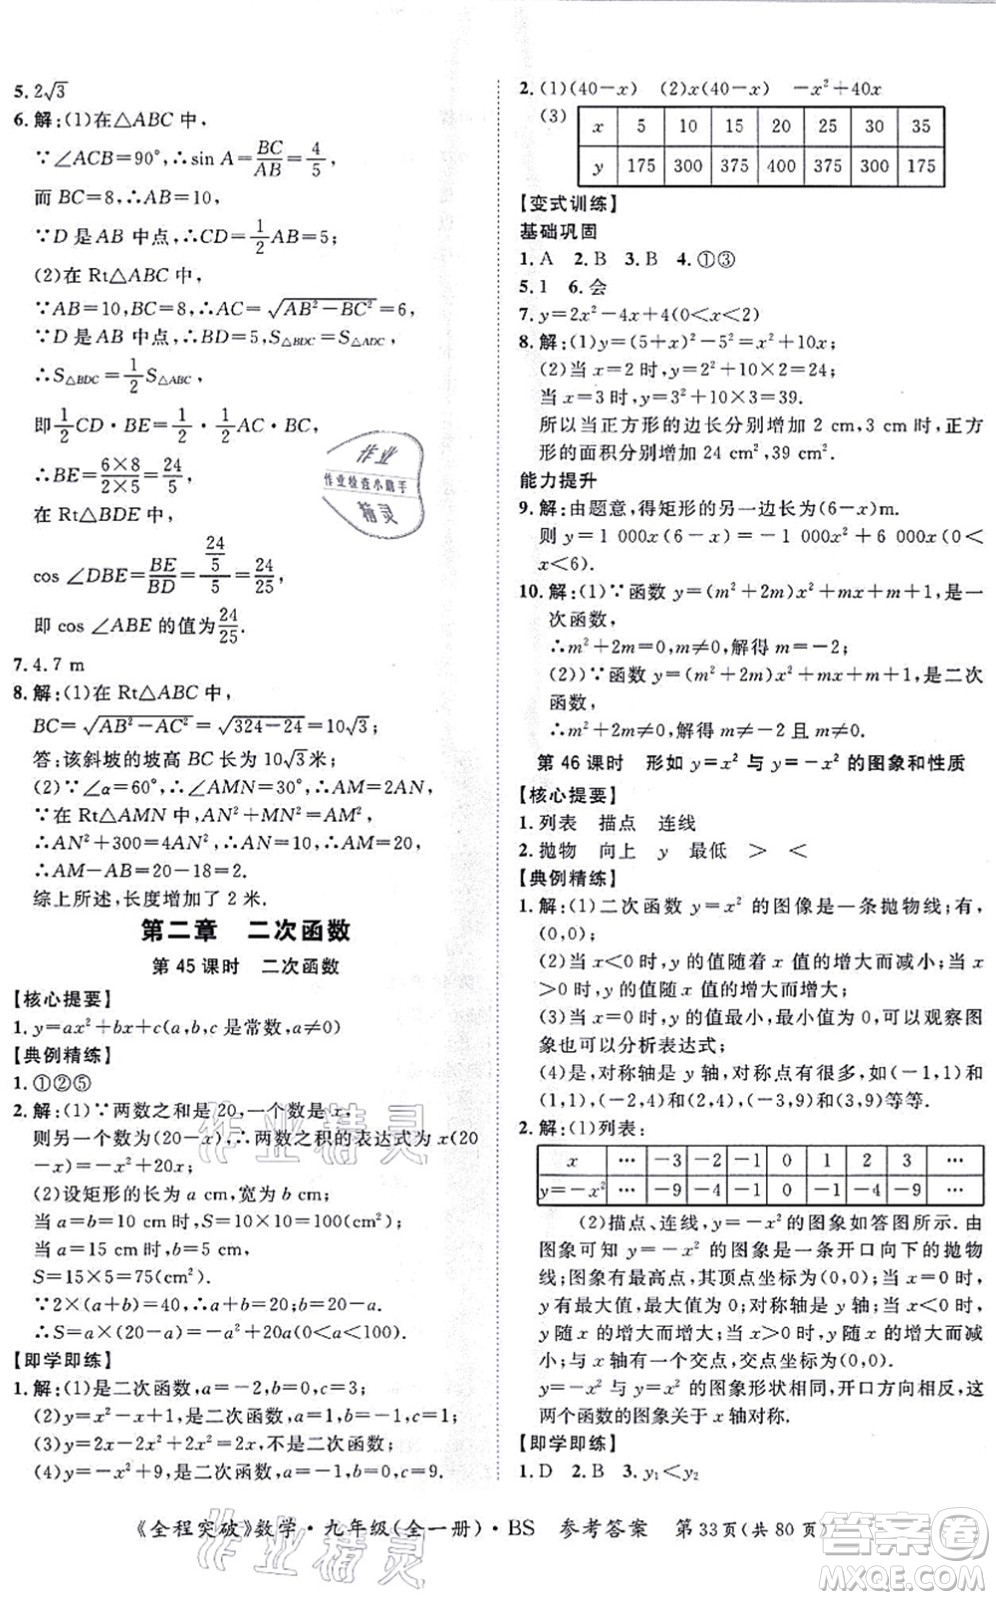 5. 2√3
6. 解:(1)在△ABC 中,
∵∠ACB=90°,∴sin A=BC/AB=4/5
而 BC=8,∴AB=10,
∵D 是 AB 中点,∴CD=1/2AB=5;
(2)在 Rt△ABC 中,
∵AB=10,BC=8,∴AC=√(AB²-BC²)=6,
∵D 是 AB 中点,∴BD=5,S△BDC=S△ADC,
∴S△BDC=1/2S△ABC,
即1/2CD·BE=1/2·1/2AC·BC,
∴BE=(6×8)/(2×5)=24/5,
在 Rt△BDE 中,
cos ∠DBE=BE/BD=(24/5)/5=24/25,
即 cos ∠ABE 的值为24/25.
7. 4.7 m
8. 解:(1)在 Rt△ABC 中,
BC=√(AB²-AC²)=√(324-24)=10√3
答:该斜坡的坡高 BC 长为 10√3米;
(2)∵∠α=60°,∴∠AMN=30°,∴AM=2AN,
∵在 Rt△AMN 中,AN²+MN²=AM²,
∴AN²+300=4AN²,∴AN=10,∴AM=20,
∴AM-AB=20-18=2.
综上所述,长度增加了 2 米.
第二章 二次函数
第 45 课时 二次函数
【核心提要】
1. y=ax²+bx+c(a,b,c 是常数,a≠0)
【典例精练】
1. ①②⑤
2. 解:(1)∵两数之和是 20,一个数是 x,
则另一个数为(20-x),∴两数之积的表达式为 x(20
-x)=-x²+20x;
(2)设矩形的长为 a cm,宽为 b cm,
当 a=b=10 时,S=10×10=100(cm²);
当 a=15,b=5 时,
S=15×5=75(cm²).
∵2×(a+b)=40,∴a+b=20,∴b=20-a.
∴S=a(20-a)=-a²+20a(0<a<20).
【即学即练】
1. 解:(1)是二次函数,a=-2,b=0,c=3;
(2)y=x²-x+1,是二次函数,a=1,b=-1,c=1;
(3)y=2x-2x²-2x²,不是二次函数;
(4)y=-x²+9,是二次函数,a=-1,b=0,c=9.
2. (1)(40-x) (2)x(40-x) -x²+40x
(3) x 5 10 15 20 25 30 35
y 175 300 375 400 375 300 175
【变式训练】
基础巩固
1. A 2. B 3. B 4. ①③
5. 1 6. 会
7. y=2x²-4x+4(0<x<2)
8. 解:(1)y=(5+x)²-5²=x²+10x;
(2)当 x=2 时,y=2²+10×2=24;
当 x=3 时,y=3²+10×3=39.
所以当正方形的边长分别增加 2 cm,3 cm 时,正方
形的面积分别增加 24 cm²,39 cm².
能力提升
9. 解:由题意,得矩形的另一边长为(6-x)m.
则 y=1 000x(6-x)=-1 000x²+6 000x(0<
x<6).
10. 解:(1)∵函数 y=(m²+2m)x²+mx+m+1,是一
次函数,
∴m²+2m=0,m≠0,解得 m=-2;
(2))∵函数 y=(m²+2m)x²+mx+m+1,是二次
函数,
∴m²+2m≠0,解得 m≠-2 且 m≠0.
第 46 课时 形如 y=x² 与 y=-x² 的图象和性质
【核心提要】
1. 列表 描点 连线
2. 抛物 向上 y 最低 > <
【典例精练】
1. 解:(1)二次函数 y=x² 的图像是一条抛物线;有,
(0,0);
(2)当 x<0 时,y 的值随着 x 值的增大而减小;当 x
>0 时,y 的值随 x 值的增大而增大;
(3)当 x=0 时,y 的值最小,最小值为 0,可以观察图
象也可以分析表达式;
(4)是,对称轴是 y 轴,对称点有很多,如(-1,1)和
(1,1),(-2,4)和(2,4),(-3,9)和(3,9)等等.
2. 解:(1)列表:
x … -3 -2 -1 0 1 2 3 …
y=-x² … -9 -4 -1 0 -1 -4 -9 …
(2)描点、连线,y=-x² 的图象如答图所示.由
图象可知 y=-x² 的图象是一条开口向下的抛物
线;图象有最高点,其坐标为(0,0);当 x=0 时,y
有最大值,最大值为 0;对称轴是 y 轴;当 x<0 时,
y 随 x 的增大而增大,当 x>0 时,y 随 x 的增大而减
小;与 x 轴有一个交点,交点坐标为(0,0).
y=-x² 与 y=x² 的图象形状相同,开口方向相反,这
两个函数的图象关于 x 轴对称.
【即学即练】
1. D 2. B 3. y₁<y₂
《全程突破》数学·九年级(全一册)·BS 参考答案 第33页(共 80 页)
作业
作业检查小助手
精灵
作业精灵
作业精灵
答案圈
MXQE.COM